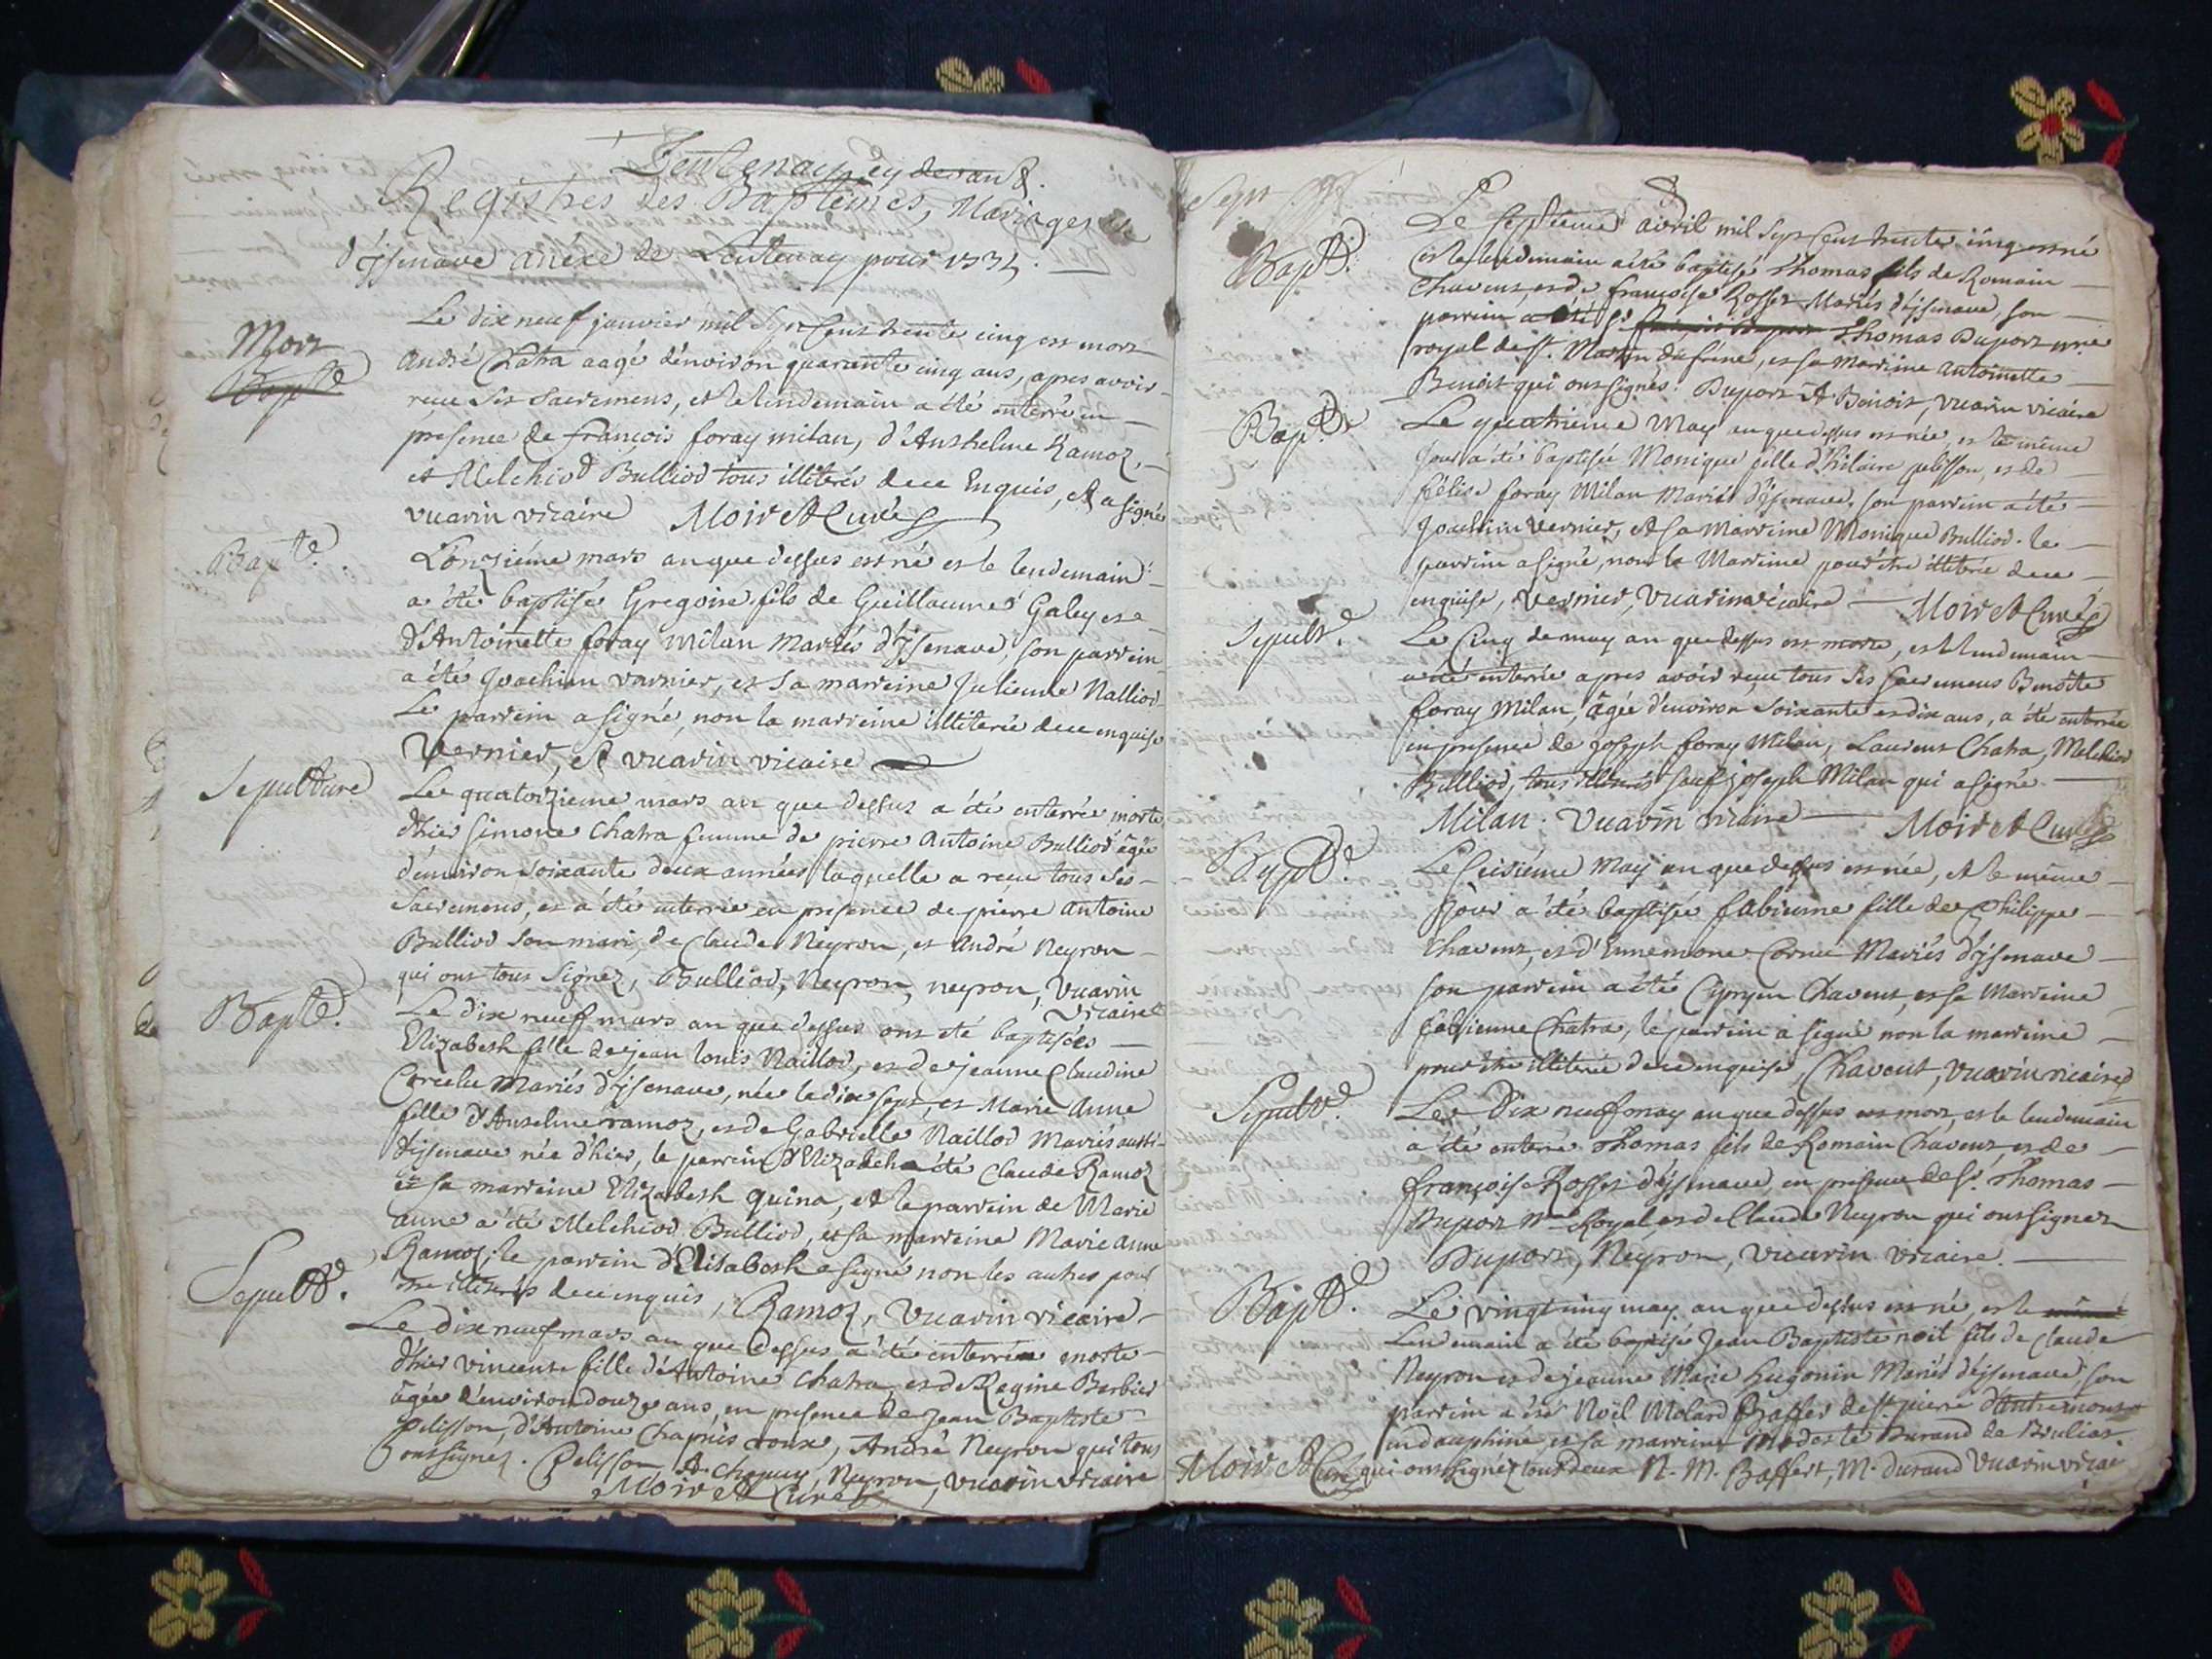 Lentenay cy devant
Registres des Baptêmes, Mariages
d'jsenave anéxe de Lentenay pour 1735.
Mort
Bapte
Le dix neuf janvier mil sept cent trente cinq est mort
André Chatra aagé d'environ quarante cinq ans, apres avoir
reçu ses sacremens, et le lendemain a été enterré en
presence de françois foray milan, d'Anthelme Ramoz,
et Melchiod Bulliod tous illiterés de ce Enquis, et a signé
vuarin vicaire Moiret Curé
Bapte.
L'onzième mars an que dessus est né et le lendemain
a été baptisé Gregoire fils de Guillaume Galey et
d'Antoinette foray milan Mariés d'jsenave, son parrein
a été Joachim varnier, et sa marreine Julienne Nalliod
Le parrein a signé, non la marreine illiterée de ce enquise
Vernier, et vuarin vicaire
Sepulture
Le quatorzieme mars an que dessus a été enterrée morte
d'hier simone Chatra femme de pierre Antoine Bulliod âgée
d'environ soixante deux années laquelle a reçu tous ses
sacremens, et a été enterrée en presence de pierre antoine
Bulliod son mari, de Claude Neyron, et André Neyron
qui ont tous signez, Bulliod, Neyron, neyron, Vuarin
vicaire
Bapte.
Le dix neuf mars an que dessus ont été baptisées
Elizabeth fille de jean louis Naillod, et de jeanne Claudine
Mariés d'jsenave, née le dix sept, et Marie Anne
fille d'Anselme ramoz, et de Gabrielle Naillod Mariés aussi
d'jsenave née d'hier, le parrein d'Elizabeth a été Claude Ramoz
et sa marreine Elizabeth quina, et le parrein de Marie
anne a été Melchiod Bulliod, et sa marreine Marie anne
Ramoz; le parrein d'Elisabeth a signé non les autres pour
être illiterés de ce enquis, Ramoz, Vuarin vicaire
Sepulte.
Le dix neuf mars an que dessus a été enterrée morte
d'hier vincente fille d'Antoine Chatra, et de Regine Barbier
âgée d'environ douze ans, en presence de Jean Baptiste
Pelisson, d'Antoine Chapuis roux, André Neyron qui tous
ont signez. Pelisson, A. Chapuy, Neyron, vuarin vicaire
Moiret Curé
Bapte.
Le septieme avril mil sept cent trente cinq est né
et le lendemain a été baptisé Thomas fils de Romain
Chavent, et de françoise Rosset Mariés d'jsenave, son
parrein a été Sr. Thomas Duport nre
royal de St. Martin du frêne, et sa marreine Antoinette
Benoit qui ont signés: Duport A Benoit, vuarin vicaire
Bapte
Le quatrieme May an que dessus est née, et le même
jour a été baptisée Monique fille d'hilaire pelisson, et de
félise foray Milan Mariés d'jsenave, son parrein a été
Joachim vernier, et sa Marreine Monique Bulliod. le
parrein a signé, non la Marreine pour être illiterée de ce
enquise, vernier, vuarin vicaire Moiret Curé
Sepulte.
Le Cinq de may an que dessus est morte, et le lendemain
a été enterrée apres avoir reçu tous ses sacremens Benoite
foray Milan, âgée d'environ soixante et dix ans, a été enterrée
en presence de joseph foray Milan, Laurent Chatra, Melchiod
Bulliod, tous illiterés sauf joseph Milan qui a signé
Milan. Vuarin vicaire Moiret Curé
Bapte.
Le seisiéme May an que dessus est née, et le même
jour a été baptisée fabienne fille de Philippe
Chavent, et d'Ennemone Cornu Mariés d'jsenave
son parrein a été Cypryen Chavent, et sa Marreine
fabienne Chatra, le parrein a signé non la marreine
pour être illiterée de ce enquise, Chavent, vuarin vicaire
Sepulte.
Le Dix neuf may an que dessus est mort, et le lendemain
a été enterré Thomas fils de Romain Chavent et de
françoise Rosset d'jsenave, en presence de Sr. Thomas
Duport Nre Royal, et de Claude Neyron qui ont signez
Duport, Neyron, vuarin vicaire.
Bapte.
Le vingt cinq may an que dessus est né, et le même
Lendemain a été baptisé Jean Baptiste noël fils de Claude
Neyron et de jeanne Marie hugonin Mariés d'jsenave, son
parrein a été Noël Molard Baffert de St pierre d'Entremont
en dauphiné et sa marreine Modeste Durand de
Moiret Curé qui ont signéz tous deux N. M. Baffert, M. durand Vuarin vicai